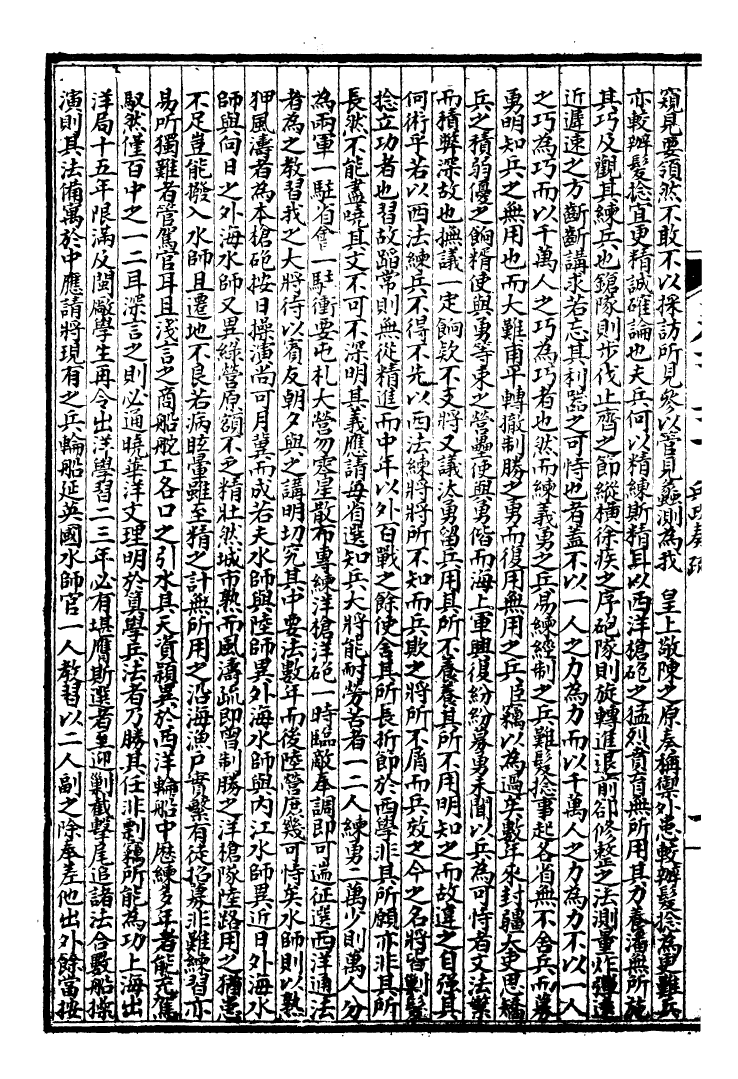 窺見要領然不敢不以採訪所見參以管見蠡測為我 皇上敬陳之原奏稱禦外患較辦髮捻為更難兵
亦較辦髮捻宜更精誠確論也夫兵何以精練斯精耳以西洋槍砲之猛烈賁育無所用其力養潘無所施
其巧及觀其練兵也鎗隊則步伐止齊之節縱橫徐疾之序砲隊則旋轉進退前卻修整之法測量炸彈遠
近遲速之方斷斷講求若忘其利器之可恃也者蓋不以一人之力為力而以千萬人之力為力不以一人
之巧為巧而以千萬人之巧為巧者也然而練義勇之兵易練經制之兵難髮捻事起各省無不舍兵而募
勇明知兵之無用也而大難甫平轉撤制勝之勇而復用無用之兵臣竊以為過矣數年來封疆大吏思矯
兵之積弱優之餉糈使與勇等束之營壘使與勇偕而海上軍興復紛紛募勇未聞以兵為可恃者文法繁
而積弊深故也撫議一定餉欵不支將又議汰勇留兵用其所不養養其所不用明知之而故違之自強其
何術乎若以西法練兵不得不先以西法練將將所不知而兵欺之將所不屑而兵效之今之名將皆剿髮
捻立功者也習故蹈常則無從精進而中年以外百戰之餘使舍其所長折節於西學非其所願亦非其所
長然不能盡曉其文不可不深明其義應請每省選知兵大將能耐勞苦者一二人練勇二萬少則萬人分
為兩軍一駐省會一駐衝要屯札大營勿零星散布專練洋槍洋砲一時臨敵奉調即可遄征選西洋通法
者為之教習我之大將待以賓友朝夕與之講明切究其中要法數年而後陸營庶幾可恃矣水師則以熟
狎風濤者為本槍砲按日操演尚可月冀而成若夫水師與陸師異外海水師與內江水師異近日外海水
師與向日之外海水師又異綠營原額不乏精壯然城市熟而風濤疏即曾制勝之洋槍隊陸路用之猶患
不足豈能撥入水師且遷地不良若病眩暈雖至精之計無所用之沿海漁戶實繁有徒招募非難練習亦
易所獨難者管駕官耳且淺言之商船舵工各口之引水其天資穎異於西洋輪船中歷練多年者能充駕
馭然僅百中之一二耳深言之則必通曉華洋文理明於算學兵法者乃勝其任非剽竊所能為功上海出
洋局十五年限滿及閩廠學生再令出洋學習二三年必有堪膺斯選者至迎剿截擊尾追諸法合數船操
演則其法備寓於中應請將現有之兵輪船延英國水師官一人教習以二人副之除奉差他出外餘當按